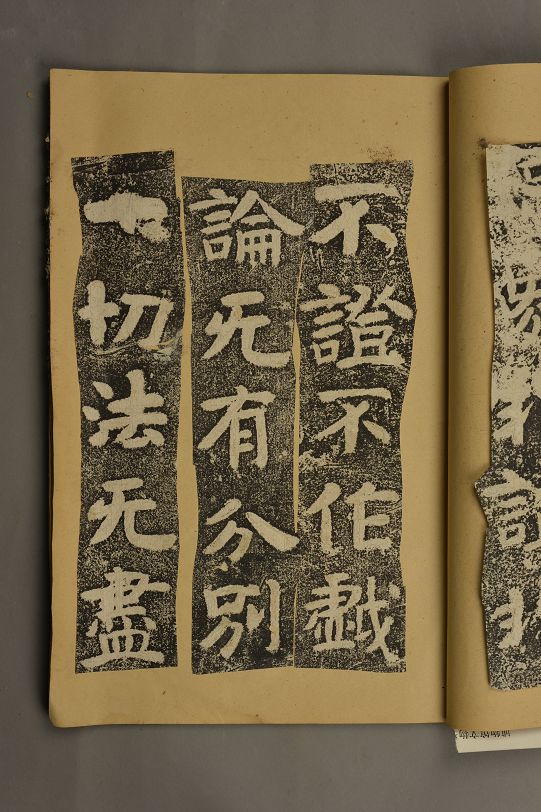 不證不作戲
論无有分別
一切法无盡